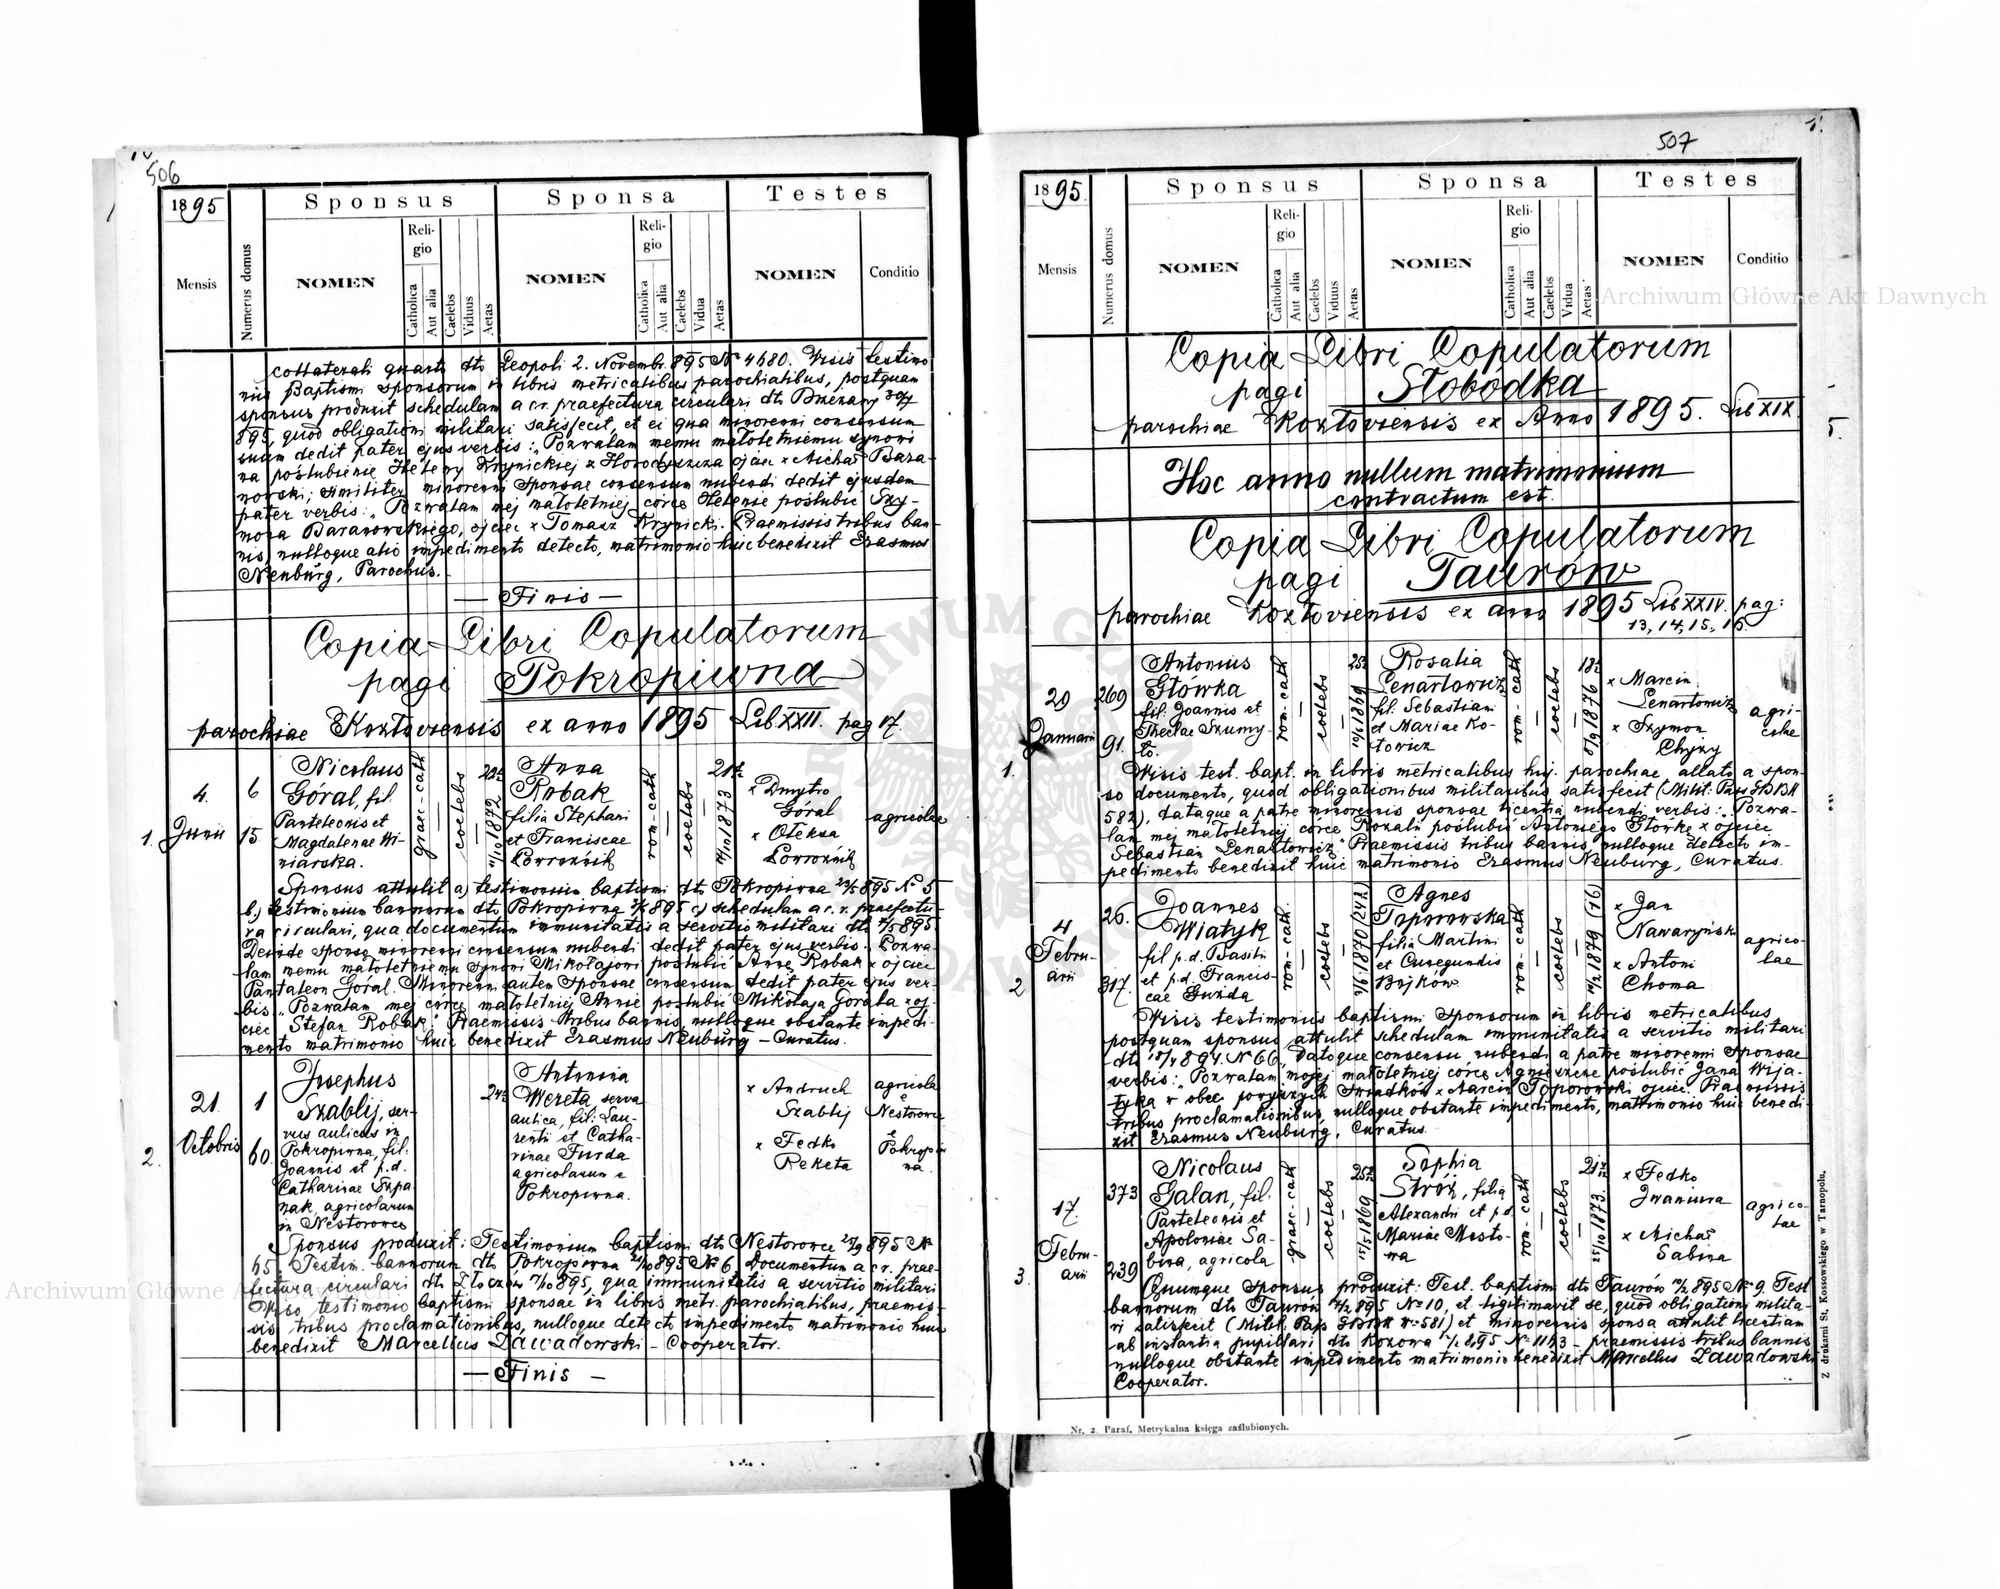 506
1895
Mensis
Numerus domus
Sponsus
NOMEN
Religio
Catholica
Aut alia
Caelebs
Viduus
Aetas
Sponsa
NOMEN
Religio
Catholica
Aut alia
Caelebs
Vidua
Aetas
Testes
NOMEN
Conditio
collaterali quarti dto Leopoli 2. Novembr. 895 № 4480. Visis testimo-
niis Baptismi sponsorum in libris metricalibus parochialibus, postquam
sponsus produxit schedulam a c.r. praefectura circulari dto Brzeżany
895, quod obligationi militari satisfecit, et ei qua minorenni consensum
suum dedit pater ejus verbis: „Pozwalam memu małoletniemu synowi
na poślubienie Heleny Krynickiej z Horodyszcza ojciec x Michał Bara-
nowski; similiter minorenni sponsae consensum nubendi dedit ejusdem
pater verbis: „Pozwalam mej małoletniej córce Helenie poślubić Szy-
mona Baranowskiego, ojciec x Tomasz Krynicki. Praemissis tribus ban-
nis, nulloque alio impedimento detecto, matrimonio huic benedixit Erasmus
Neuburg, Parochus.
— Finis —
Copia Libri Copulatorum
pagi Pokropiwna
parochiae Kozłoviensis ex anno 1895 Lib. XXII. pag 17.
1.
4.
Junii
6
15
Nicolaus
Góral, fil.
Panteleonis et
Magdalenae Wi-
niarska.
graec-cath
coelebs
Anna
Robak
filia Stephani
et Franciscae
Powroźnik
rom-cath
coelebs
x Dmytro
Góral
x Oleksa
Powroźnik
agricolae
Sponsus attulit a) testimonium baptismi dto Pokropiwna 895 № 5
b.) testimonium bannorum dto Pokropiwna 895 c) schedulam a c. r. praefectu-
ra circulari, qua documentum immunitatis a servitio militari dto 895.
Deinde sponso minorenni consensum nubendi dedit pater ejus verbis: „Pozwa-
lam memu małoletniemu synowi Mikołajowi poślubić Annę Robak x ojciec
Pantaleon Góral. Minorenni autem sponsae consensum dedit pater ejus ver-
bis: „Pozwalam mej córce małoletniej Annie poślubić Mikołaja Górala x oj-
ciec Stefan Robak." Praemissis tribus bannis, nulloque obstante impedi-
mento matrimonio huic benedixit Erasmus Neuburg — Curatus.
2.
21.
Octobris
1
60
Josephus
Szablij, ser-
vus aulicus in
Pokropiwna, fil.
Joannis et p.d.
Catharinae Supa-
nak, agricolarum
in Nestorowce
Antonina
Wereta, serva
aulica, fil. Lau-
rentii et Catha-
rinae Furda
agricolarum e
Pokropiwna.
x Andruch
Szablij
x Fedko
Reketa
agricola
e
Nestorowce
e
Pokropiw
na.
Sponsus produxit: Testimonium baptismi dto Nestorowce 895 №
45. Testim. bannorum dto Pokropiwna 895 № 6. Documentum a c.r. prae-
fectura circulari dto Złoczów 895, qua immunitatis a servitio militari
Viso testimonio baptismi sponsae in libris metr. parochialibus, praemis-
sis tribus proclamationibus, nulloque detecto impedimento matrimonio huic
benedixit Marcellus Zawadowski — Cooperator.
— Finis —
507
1895
Mensis
Numerus domus
Sponsus
NOMEN
Religio
Catholica
Aut alia
Caelebs
Viduus
Aetas
Sponsa
NOMEN
Religio
Catholica
Aut alia
Caelebs
Vidua
Aetas
Testes
NOMEN
Conditio
Copia Libri Copulatorum
pagi Słobódka
parochiae Kozłoviensis ex Anno 1895. Lib XIX.
5.
Hoc anno nullum matrimonium
contractum est.
Copia Libri Copulatorum
pagi Taurów
parochiae Kozłoviensis ex anno 1895 Lib XXIV. pag:
13, 14, 15, 16.
1.
29
Januarii
269
91.
Antonius
Główka
fil. Joannis et
Theclae Szumy-
ło.
rom-cath
coelebs
Rosalia
Lenartowicz
fil. Sebastiani
et Mariae Ko-
towicz
rom-cath
coelebs
x Marcin
Lenartowicz
x Szymon
Chyży
agri-
colae
Visis test. bapt. in libris metricalibus huj. parochiae, allato a spon-
so documento, quod obligationibus militaribus satisfecit (Milit. Pass
582), dataque a patre minorennis sponsae licentia nubendi verbis: „Pozwa-
lam mej małoletniej córce Rozalii poślubić Antoniego Główkę x ojciec
Sebastian Lenartowicz." Praemissis tribus bannis, nulloque detecto im-
pedimento benedixit huic matrimonio Erasmus Neuburg, Curatus.
2
4
Febru-
arii
26.
317.
Joannes
Wiatyk
fil p.d. Basilii
et p.d. Francis-
cae Guzda
rom-cath.
coelebs
Agnes
Toporowska
filia Martini
et Cunegundis
Bojków
rom-cath
coelebs
x Jan
Nawaryński
x Antoni
Choma
agrico-
lae
Visis testimoniis baptismi sponsorum in libris metricalibus
postquam sponsus attulit schedulam immunitatis a servitio militari
dto 894. № 66, datoque consensu nubendi a patre minorenni sponsae
verbis: „Pozwalam mojej małoletniej córce Agnieszce poślubić Jana Wija-
tyka w obec powyższych świadków x Marcin Toporowski ojciec. Praemissis
tribus proclamationibus, nulloque obstante impedimento, matrimonio huic benedi-
xit Erasmus Neuburg, Curatus.
3.
17.
Febru-
arii
373
239
Nicolaus
Galan, fil.
Panteleonis et
Apoloniae Sa-
bina, agricola
graec-cath
coelebs
Sophia
Stróż, filia
Alexandri et p.d.
Mariae Mosto-
wa
rom-cath
coelebs
x Fedko
Iwaniura
x Michał
Sabina
agrico-
lae
Quumque Sponsus produxit: Test. baptismi dto Taurów 895 № 9. Test.
bannorum dto Taurów 895 № 10, et ligitimavit se, quod obligationi milita-
ri satisfecit (Milit. Pass № 581) et minorennis sponsa attulit licentiam
ab instantia pupillari dto Kozowa 895 № 1143 — praemissis tribus bannis
nulloque obstante impedimento matrimonio benedixit Marcellus Zawadowski
Cooperator.
Nr. 2. Paraf. Metrykalna księga zaślubionych.
Z drukarni St. Kossowskiego w Tarnopolu.
Archiwum Główne Akt Dawnych
Archiwum Główne Akt Dawnych